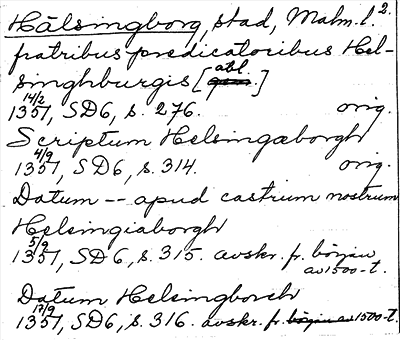 Hälsingborg, stad, Malm. l. 2.
fratribus predicatoribus Hel-
singhburgis [abl.]
14/2 1351, SD6, s. 276. orig.
Scriptum Helsingæborgh
4/9 1351, SD6, s. 314. orig.
Datum -- apud castrum nostrum
Helsingiaborgh
5/9 1351, SD6, s. 315. avskr. fr. början
av 1500-t.
Datum Helsingborch
17/9 1351, SD6, s. 316. avskr. fr. början av 1500-t.